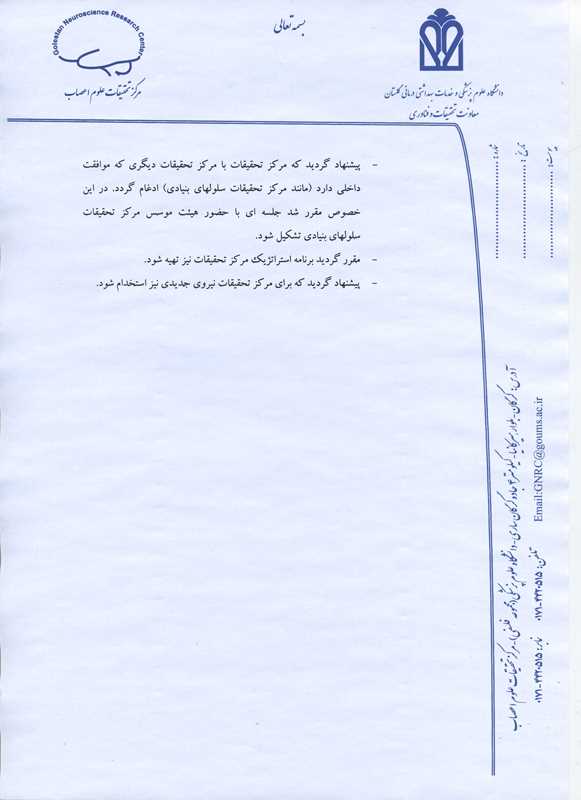 بسمه تعالی
Golestan Neuroscience Research Center
مرکز تحقیقات علوم اعصاب
دانشگاه علوم پزشکی و خدمات بهداشتی درمانی گلستان
معاونت تحقیقات و فناوری
شماره :
تاریخ :
پیوست :
- پیشنهاد گردید که مرکز تحقیقات با مرکز تحقیقات دیگری که موافقت
داخلی دارد (مانند مرکز تحقیقات سلولهای بنیادی) ادغام گردد. در این
خصوص مقرر شد جلسه ای با حضور هیئت موسس مرکز تحقیقات
سلولهای بنیادی تشکیل شود.
- مقرر گردید برنامه استراتژیک مرکز تحقیقات نیز تهیه شود.
- پیشنهاد گردید که برای مرکز تحقیقات نیروی جدیدی نیز استخدام شود.
آدرس: گرگان - بلوار هیرکانیا - کیلومتر ۴ جاده گرگان ساری - دانشگاه علوم پزشکی (مجموعه فلسفی) - مرکز تحقیقات علوم اعصاب
تلفن: ۰۱۷۱-۴۴۳۰۵۱۵ نمابر: ۰۱۷۱-۴۴۳۰۵۱۵
Email:GNRC@goums.ac.ir